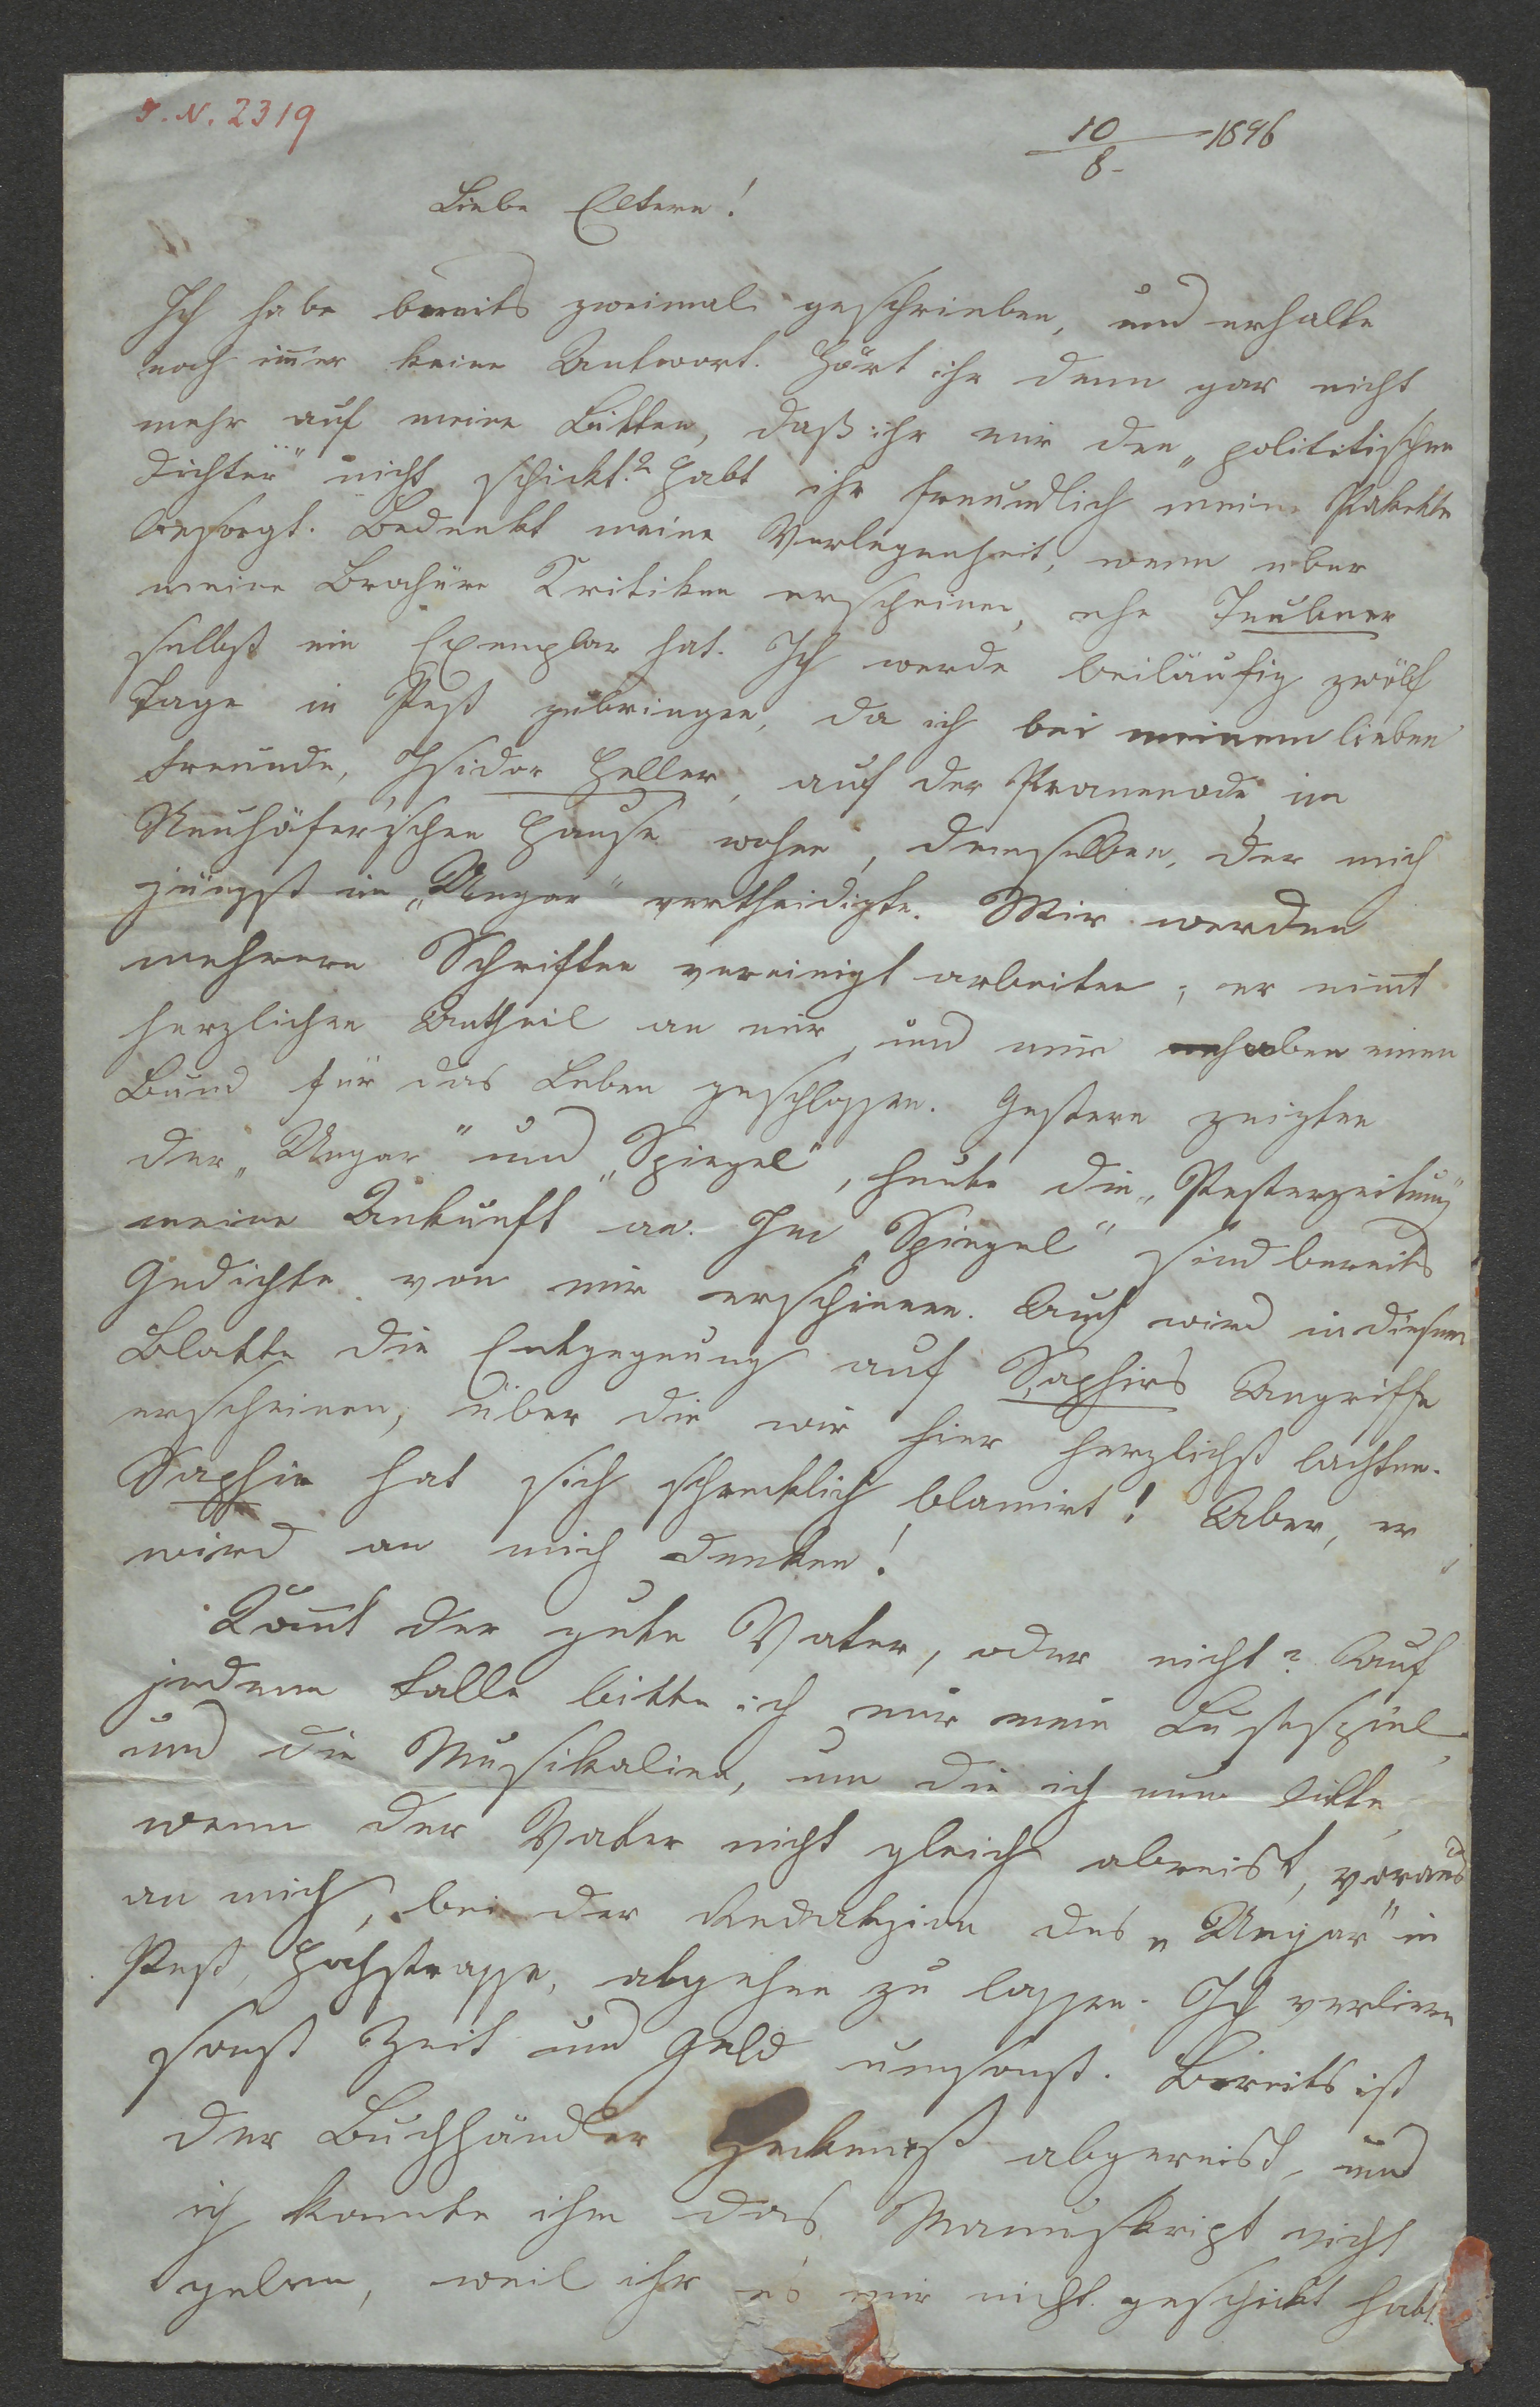 I. N. 2319
10/8 - 1846
Liebe Eltern!
Ich habe bereits zweimal geschrieben, und erhalte
noch im̅er keine Antwort. Hört ihr denn gar nicht
mehr auf meine Bitten, daß ihr mir den „polititischen
Dichter" nicht schickt? Habt ihr freundlich meine Pakette
besorgt. Bedenkt meine Verlegenheit, wenn über
meine Brochüre Kritiken erscheinen, ehe Teubner
selbst ein Exemplar hat. Ich werde beiläufig zwölf
Tage in Pest zubringen, da ich bei meinem lieben
Freunde, Isidor Heller, auf der Promenade im
Neuhöferischen Hause wohne, demselben, der mich
jüngst im „Ungar" vertheidigte. Wir werden
mehrere Schriften vereinigt arbeiten; er nim̅t
herzlichen Antheil an mir, und wir haben einen
Bund für das Leben geschlossen. Gestern zeigten
der „Ungar" und „Spiegel", heute die „Pesterzeitung"
meine Ankunft an. Im „Spiegel" sind bereits
Gedichte von mir erschienen. Auch wird in diesem
Blatte die Entgegnung auf Saphirs Angriffe
erscheinen, über die wir hier herzlichst lachten.
Saphir hat sich schrecklich blamirt! Aber, er
wird an mich denken!
Kom̅t der gute Vater, oder nicht? Auf
jedem Falle bitte ich mir mein Lustspiel,
und die Musikalien, um die ich nun bitte,
wenn der Vater nicht gleich abreist, voraus
an mich, bei der Redakzion des „Ungar" in
Pest, Hochstrasse, abgehen zu lassen. Ich verliere
sonst Zeit und Geld umsonst. Bereits ist
der Buchhändler Heckenast abgereist, und
ich konnte ihm das Manuskript nicht
geben, weil ihr es mir nicht geschickt habt.